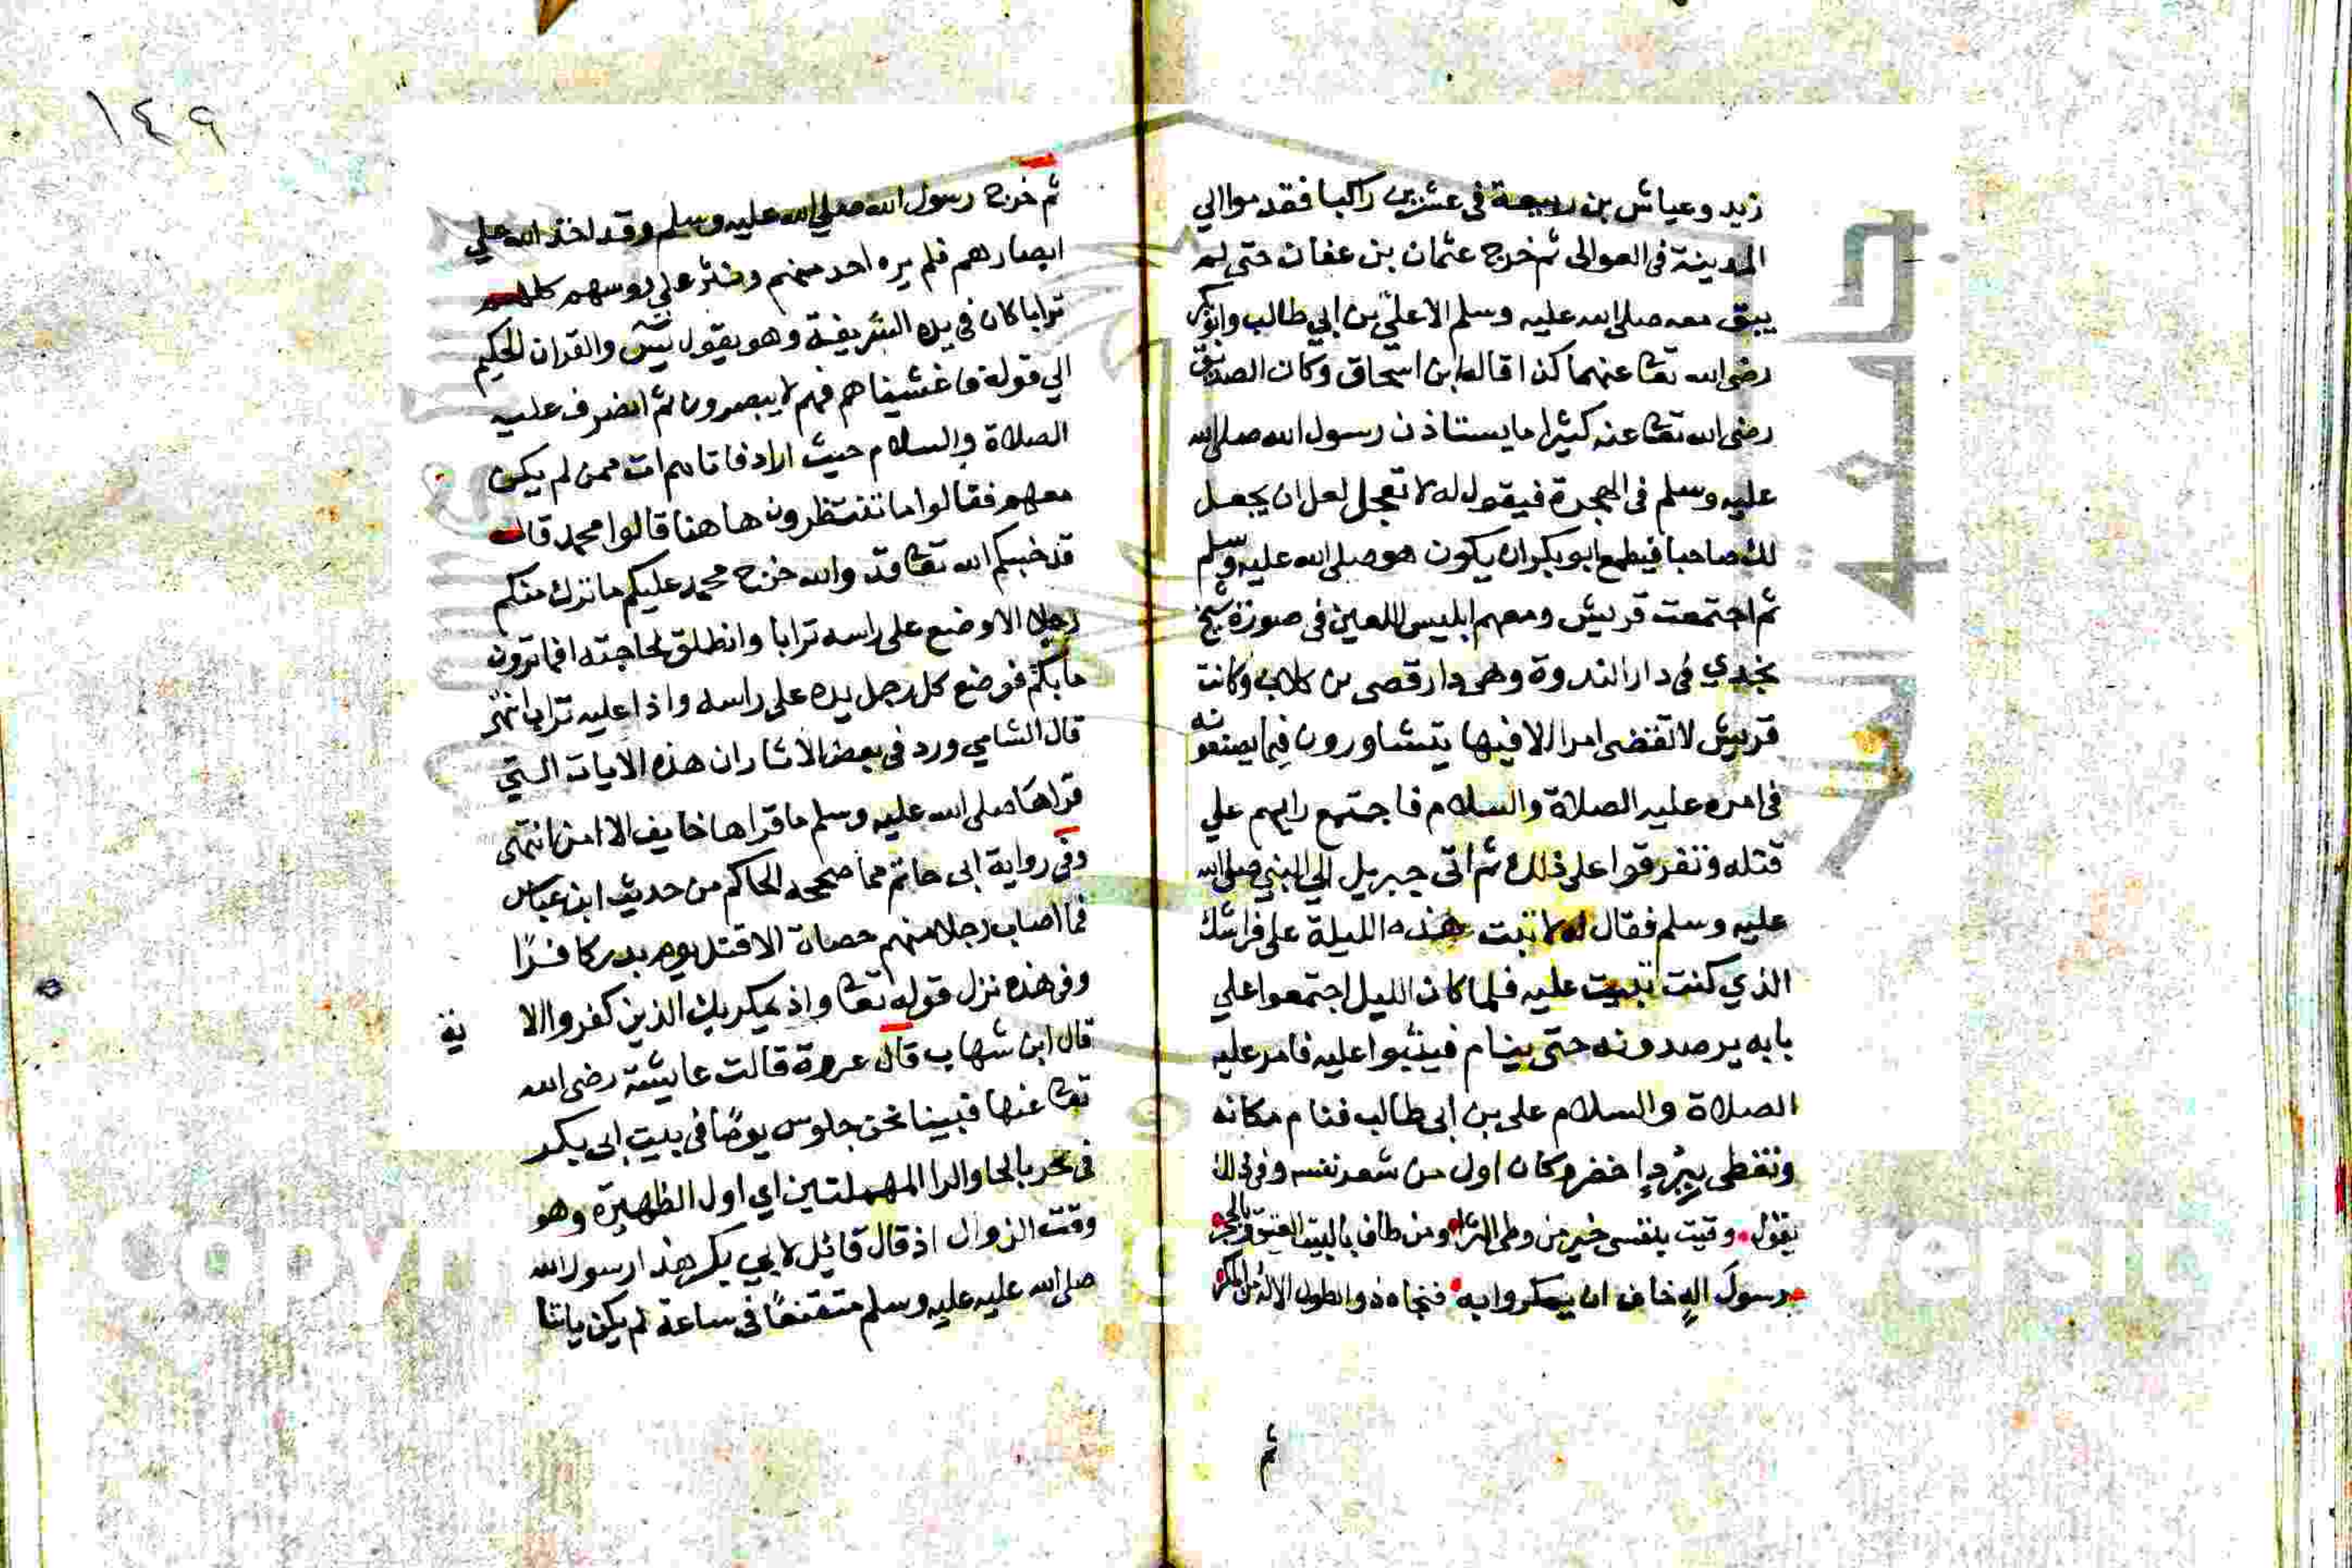 زيد وعياش بن ربيعة في عشرين راكبا فقدموا الي
المدينة في العوالى ثم خرج عثمان بن عفان حتى لم
يبق معه صلى الله عليه وسلم الا علي بن ابي طالب وابو بكر
رضى الله تعا عنهما كذا قاله ابن اسحاق وكان الصديق
رضى الله تعا عنه كثيرا ما يستاذن رسول الله صلى الله
عليه وسلم في الهجرة فيقول له لا تعجل لعل ان يجعل
لك صاحبا فيطمع ابو بكر ان يكون هو صلى الله عليه وسلم
ثم اجتمعت قريش ومعهم ابليس اللعين في صورة شيخ
نجدي في دار الندوة وهى دار قصى بن كلاب وكانت
قريش لا تقضى امرا الا فيها يتشاورون فيما يصنعونه
في امره عليه الصلاة والسلام فاجتمع رايهم علي
قتله وتفرقوا على ذلك ثم اتى جبريل الي النبي صلى الله
عليه وسلم فقال له لا تبت هذه الليلة على فراشك
الذي كنت تبيت عليه فلما كان الليل اجتمعوا علي
بابه يرصدونه حتى ينام فيثبوا عليه فامر عليه
الصلاة والسلام على بن ابى طالب فنام مكانه
وتغطى ببُرد اخضر وكان اول من شعر نفسه وفى ذلك
يقول وقيت بنفسى خير من وطى الثرا ومن طاف بالبيت العتيق وبالحجر
رسول اله خاف ان يمكروا به فنجاه ذو الطول الاله من المكر
ثم
١٤٩
ثم خرج رسول الله صلى الله عليه وسلم وقد اخذ الله علي
ابصارهم فلم يره احد منهم ونثر علي روسهم كلهم
ترابا كان في يده الشريفة وهو يقول يس والقران الحكيم
الي قوله فاغشيناهم فهم لا يبصرون ثم انصرف عليه
الصلاة والسلام حيث اراد فاتاهم ات ممن لم يكن
معهم فقالوا ما تنتظرون هاهنا قالوا محمد قال
قد خيبكم الله تعا قد والله خرج محمد عليكم ما ترك منكم
رجلا الا وضع على راسه ترابا وانطلق لحاجته افما ترون
ما بكم فوضع كل رجل يده على راسه واذا عليه تراب انتهى
قال الشامي ورد في بعض الاثار ان هذه الايات التي
قراها صلى الله عليه وسلم ما قراها خايف الا امن انتهى
وفي رواية ابى حاتم مما صححه الحاكم من حديث ابن عباس
فما اصاب رجلا منهم حصاة الا قتل يوم بدر كافرًا
وفي هذه نزل قوله تعا واذ يمكر بك الذين كفروا الا
ية
قال ابن شهاب قال عروة قالت عايشة رضى الله
تعا عنها فبينا نحن جلوس يومًا في بيت ابى بكر
في نحر بالحا والرا المهملتين اي اول الظهيرة وهو
وقت الزوال اذ قال قائل لابي بكر هذا رسول الله
صلى الله عليه عليه وسلم متقنعًا في ساعة لم يكن ياتنا